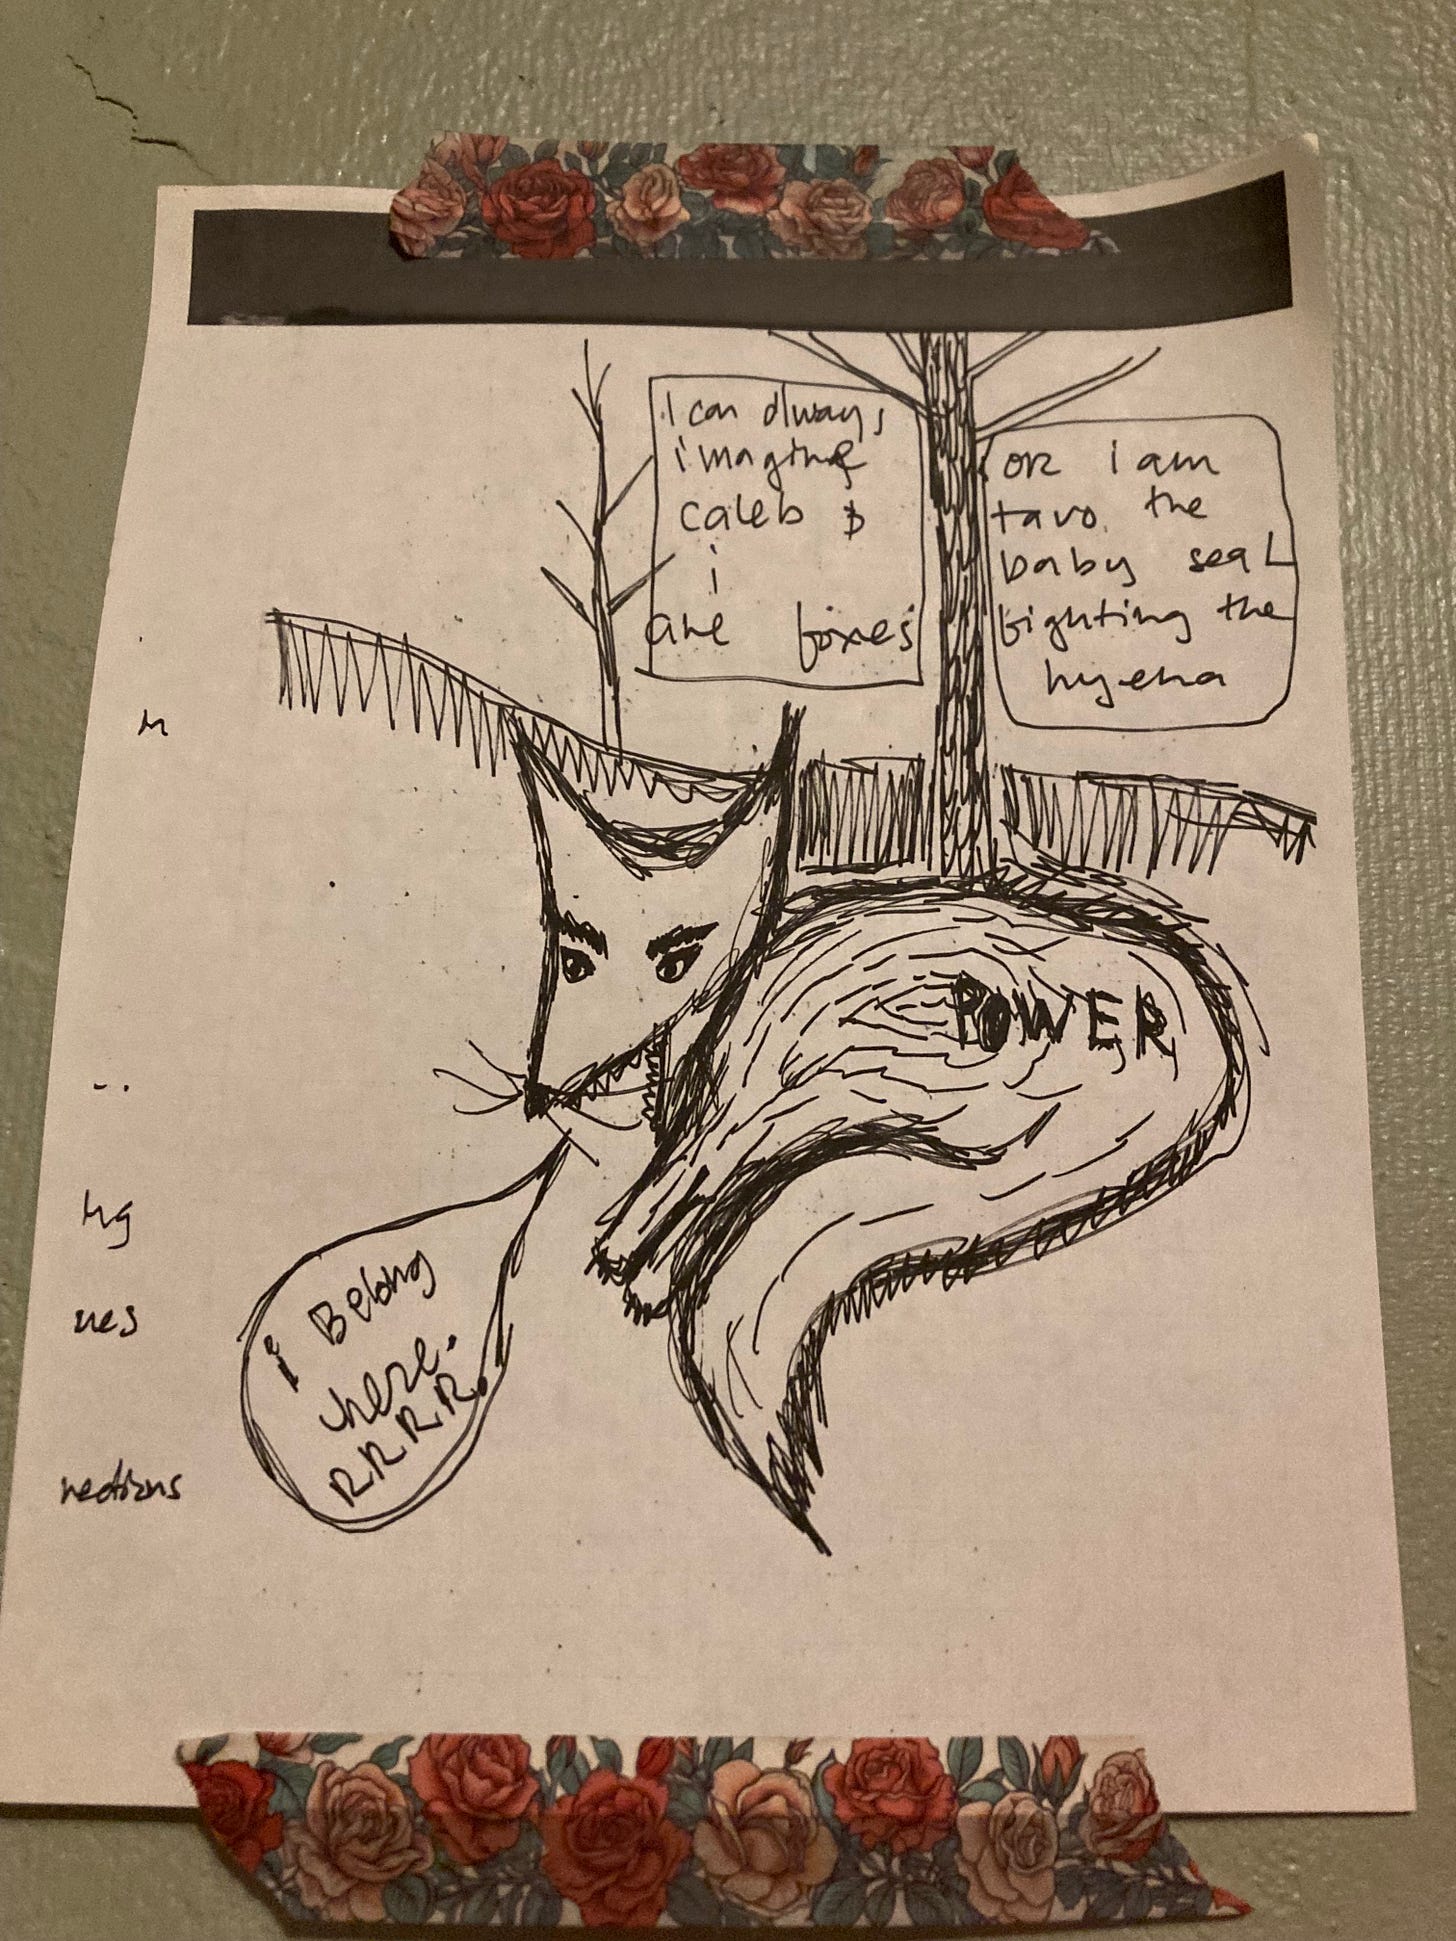 i can always
imagine
caleb &
i
are foxes
or i am
tavo the
baby seal
fighting the
hyena
POWER
i Belong
here.
RRRR.
ng
ues
nections